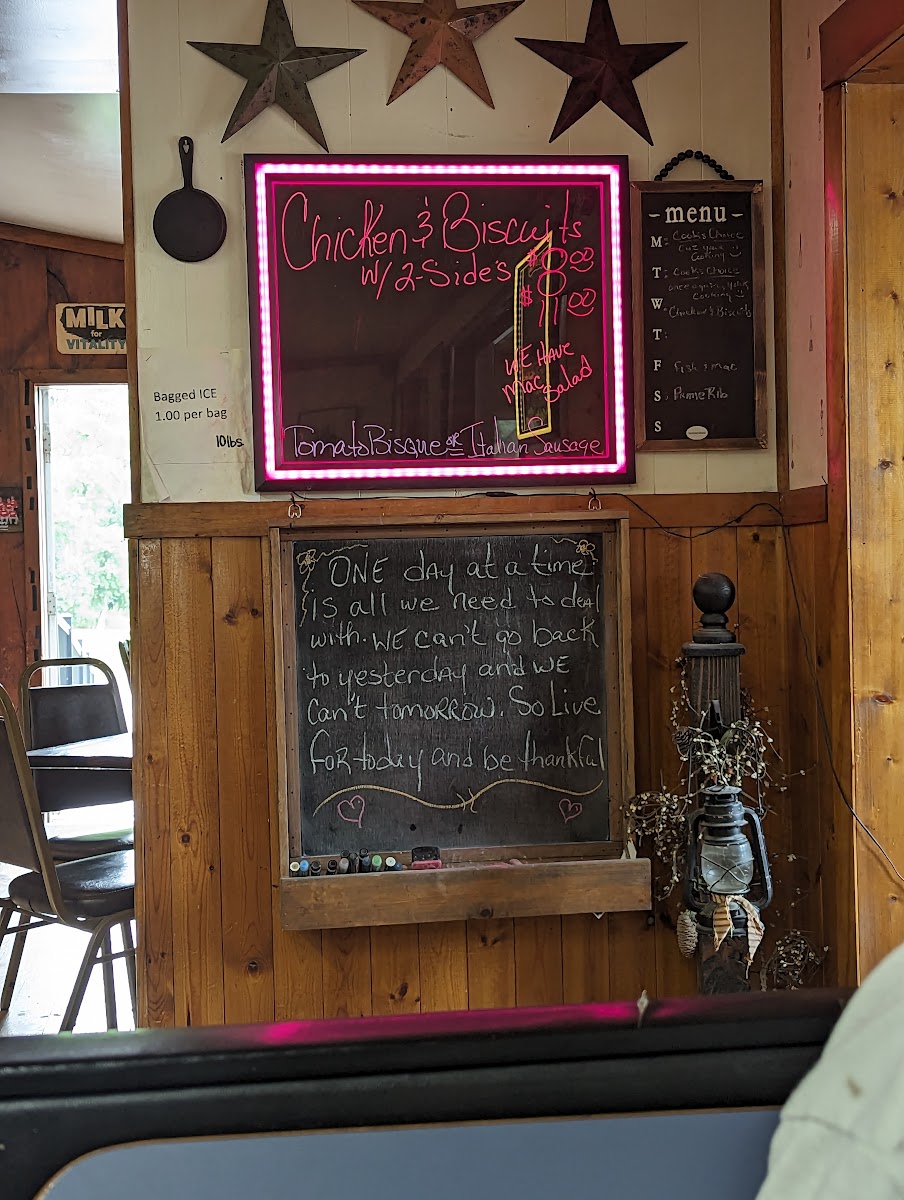 Chicken & Biscuits
w/ 2-Side's
$8.00
$11.00
WE HAVE
Mac Salad
Tomato Bisque OR Italian Sausage
- menu -
M: Cook's Choice
Cuz your
Cooking
T: Cook's Choice
once again your
Cooking
W: Chicken & Biscuits
T:
F Fish & mac
S: Prime Rib
S
MILK
for
VITALITY
Bagged ICE
1.00 per bag
10lbs
ONE day at a time
is all we need to deal
with. WE can't go back
to yesterday and WE
Can't tomorrow. So Live
for today and be thankful